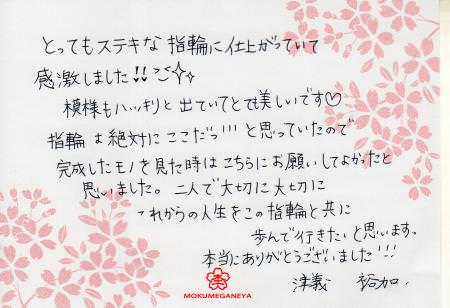 とってもステキな指輪に仕上がっていて
感激しました!!
模様もハッキリと出ていてとても美しいです♡
指輪は絶対にここだっ!!!と思っていたので
完成したモノを見た時はこちらにお願いしてよかったと
思いました。二人で大切に大切に
これからの人生をこの指輪と共に
歩んで行きたいと思います。
本当にありがとうございました!!!
津義 裕加.
MOKUMEGANEYA